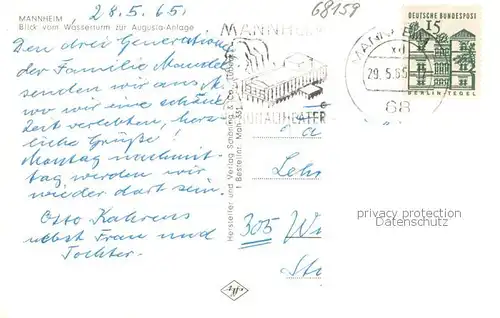 MANNHEIM
Blick vom Wasserturm zur Augusta-Anlage
28.5.65.
Den drei Generationen
der Familie Mandel
senden wir aus M.
wo wir eine schöne
Zeit verlebten, herz-
liche Grüße!
Montag nachmit-
tag werden wir
wieder dort sein.
Otto Kahrens
nebst Frau und
Tochter.
Hersteller und Verlag Schöning & Co.
Bestellnr. Mah
68159
MANNHEIM
NATIONALTHEATER
29.5.65
68
DEUTSCHE BUNDESPOST
15
BERLIN-TEGEL
Fa
Lehr
305 Wu
privacy protection
Datenschutz